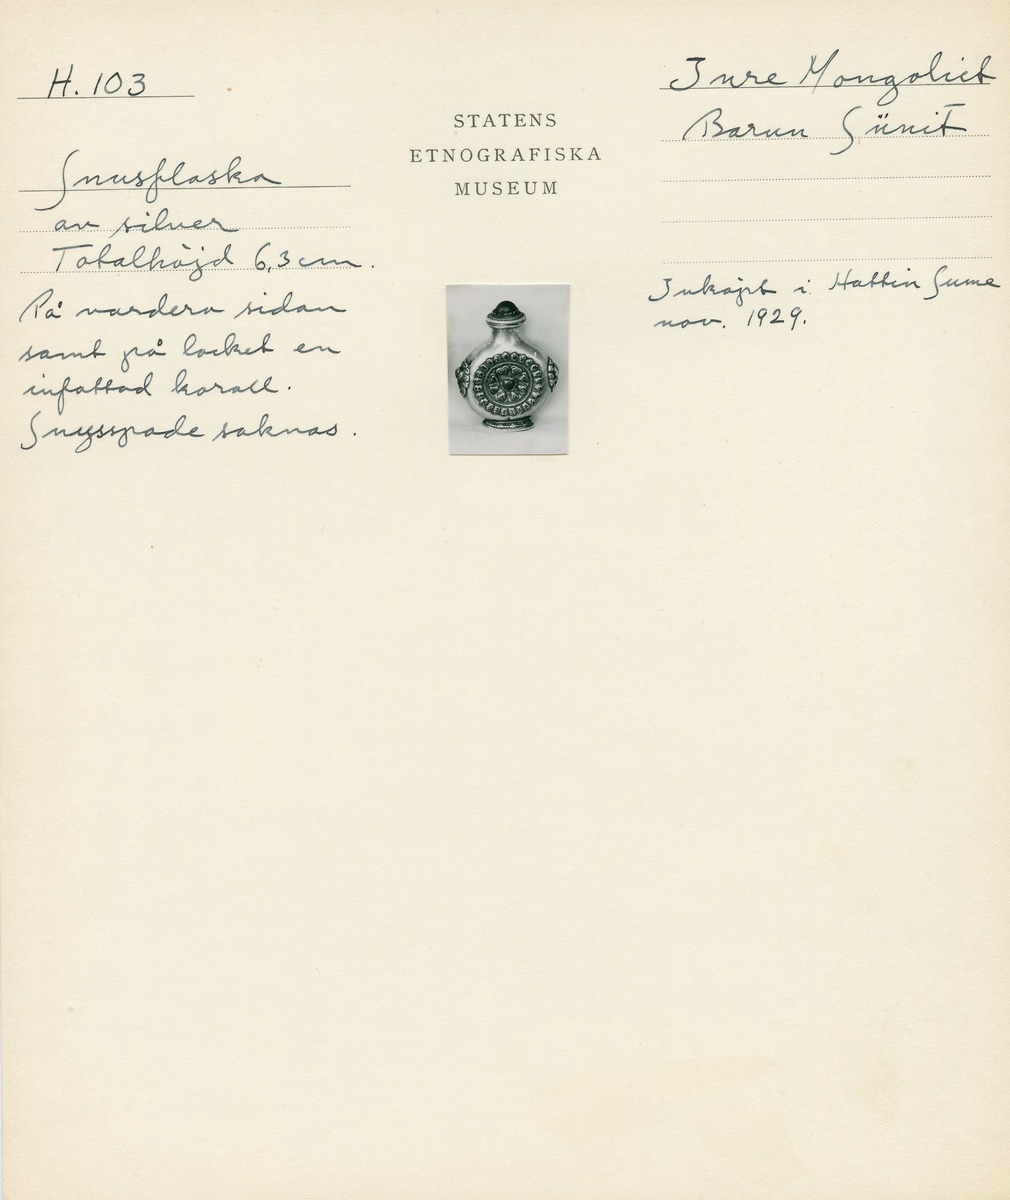 H. 103
Snusflaska
av silver
Totalhöjd 6,3 cm.
På vardera sidan
samt på locket en
infattad korall.
Snusspade saknas.
STATENS
ETNOGRAFISKA
MUSEUM
Inre Mongoliet
Barun Sünit
Inköpt i Hattin Sume
nov. 1929.